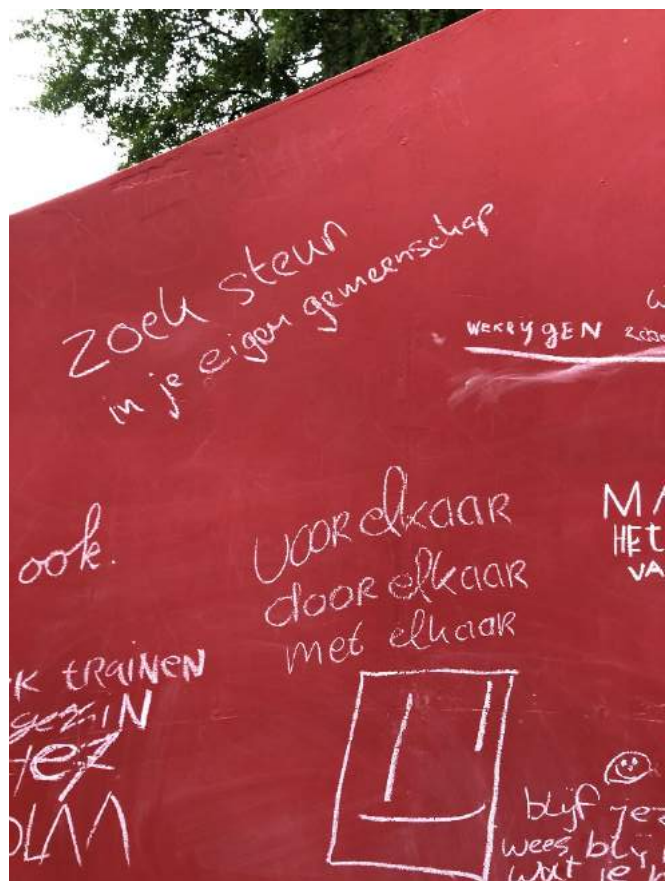 zoek steun
in je eigen gemeenschap
WE KRYGEN
ook.
VOOR elkaar
door elkaar
met elkaar
HET
VA
K tRAINEN
gezIN
blijf jez
wees bly
wat je